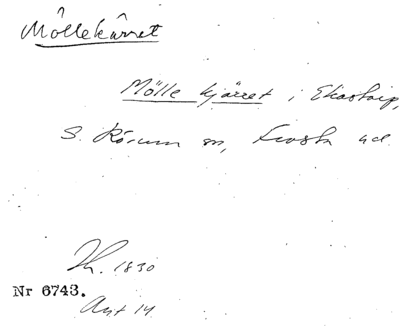 Möllekärret
Mölle kjärret i Ekastorp,
S. Rörum sn, Frosta hd.
Th. 1830
Nr 6743.
Avt 14